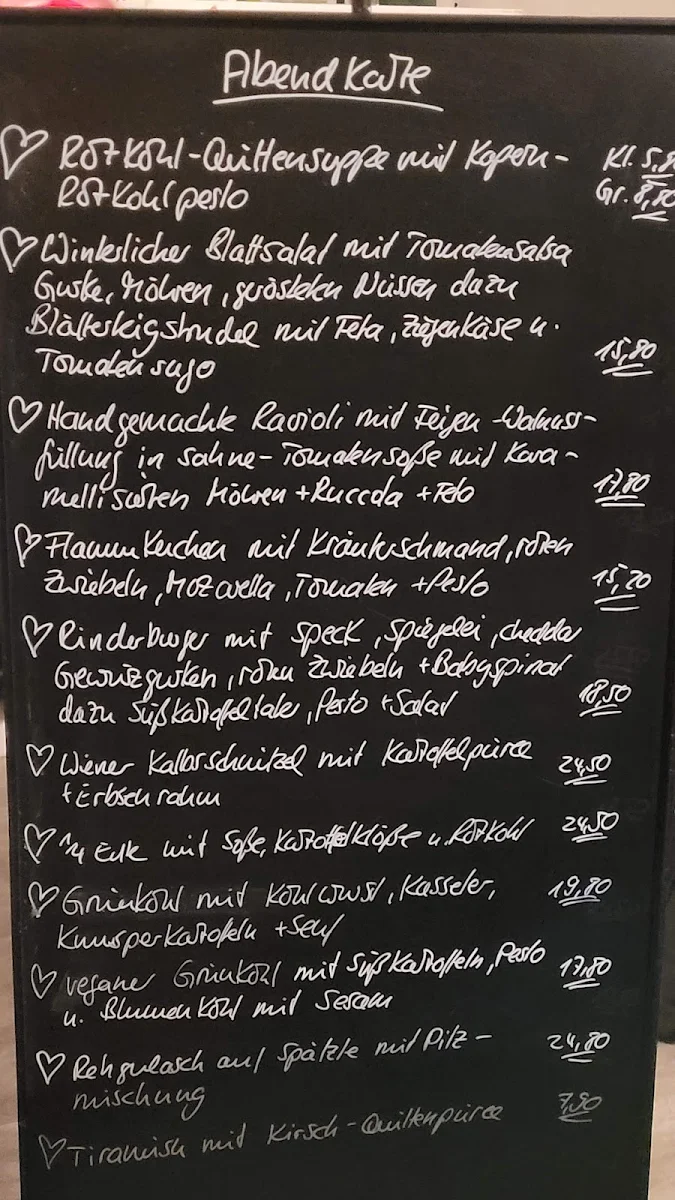 Abendkarte
Rotkohl-Quittensuppe mit Kapern-
Kl. 5,
Rotkohlpesto
Gr. 8,50
Winterlicher Blattsalat mit Tomatensalsa
Gurke, Möhren, gerösteten Nüssen dazu
Blätterteigstrudel mit Feta, Ziegenkäse u.
Tomatensugo
15,80
Handgemachte Ravioli mit Feigen-Walnuss-
füllung in Sahne-Tomatensoße mit Kara-
mellisierten Möhren + Ruccola + Feta
17,80
Flammkuchen mit Kräuterschmand, roten
Zwiebeln, Mozarella, Tomaten + Pesto
15,20
Rinderburger mit Speck, Spiegelei, Cheddar
Gewürzgurken, roten Zwiebeln + Babyspinat
dazu Süßkartoffeltaler, Pesto + Salat
18,50
Wiener Kalbsschnitzel mit Kartoffelpüree
24,50
+ Erbsenrahm
1/4 Ente mit Soße, Kartoffelklöße u. Rotkohl
24,50
Grünkohl mit Kohlwurst, Kasseler,
19,80
Knusperkartofeln + Senf
veganer Grünkohl mit Süßkartoffeln, Pesto
17,80
u. Blumenkohl mit Sesam
Rehgulasch auf Spätzle mit Pilz-
24,80
mischung
Tiramisu mit Kirsch-Quittenpüree
7,90